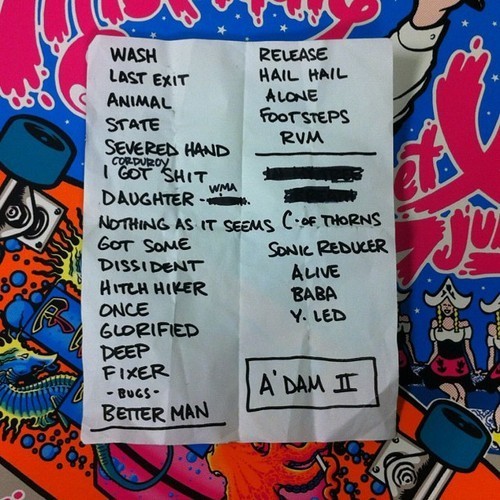 WASH
LAST EXIT
ANIMAL
STATE
SEVERED HAND
CORDUROY
I GOT SHIT
DAUGHTER - WMA
NOTHING AS IT SEEMS
GOT SOME
DISSIDENT
HITCHHIKER
ONCE
GLORIFIED
DEEP
FIXER
- BUGS -
BETTER MAN
RELEASE
HAIL HAIL
ALONE
FOOTSTEPS
RVM
C. OF THORNS
SONIC REDUCER
ALIVE
BABA
Y. LED
A'DAM II